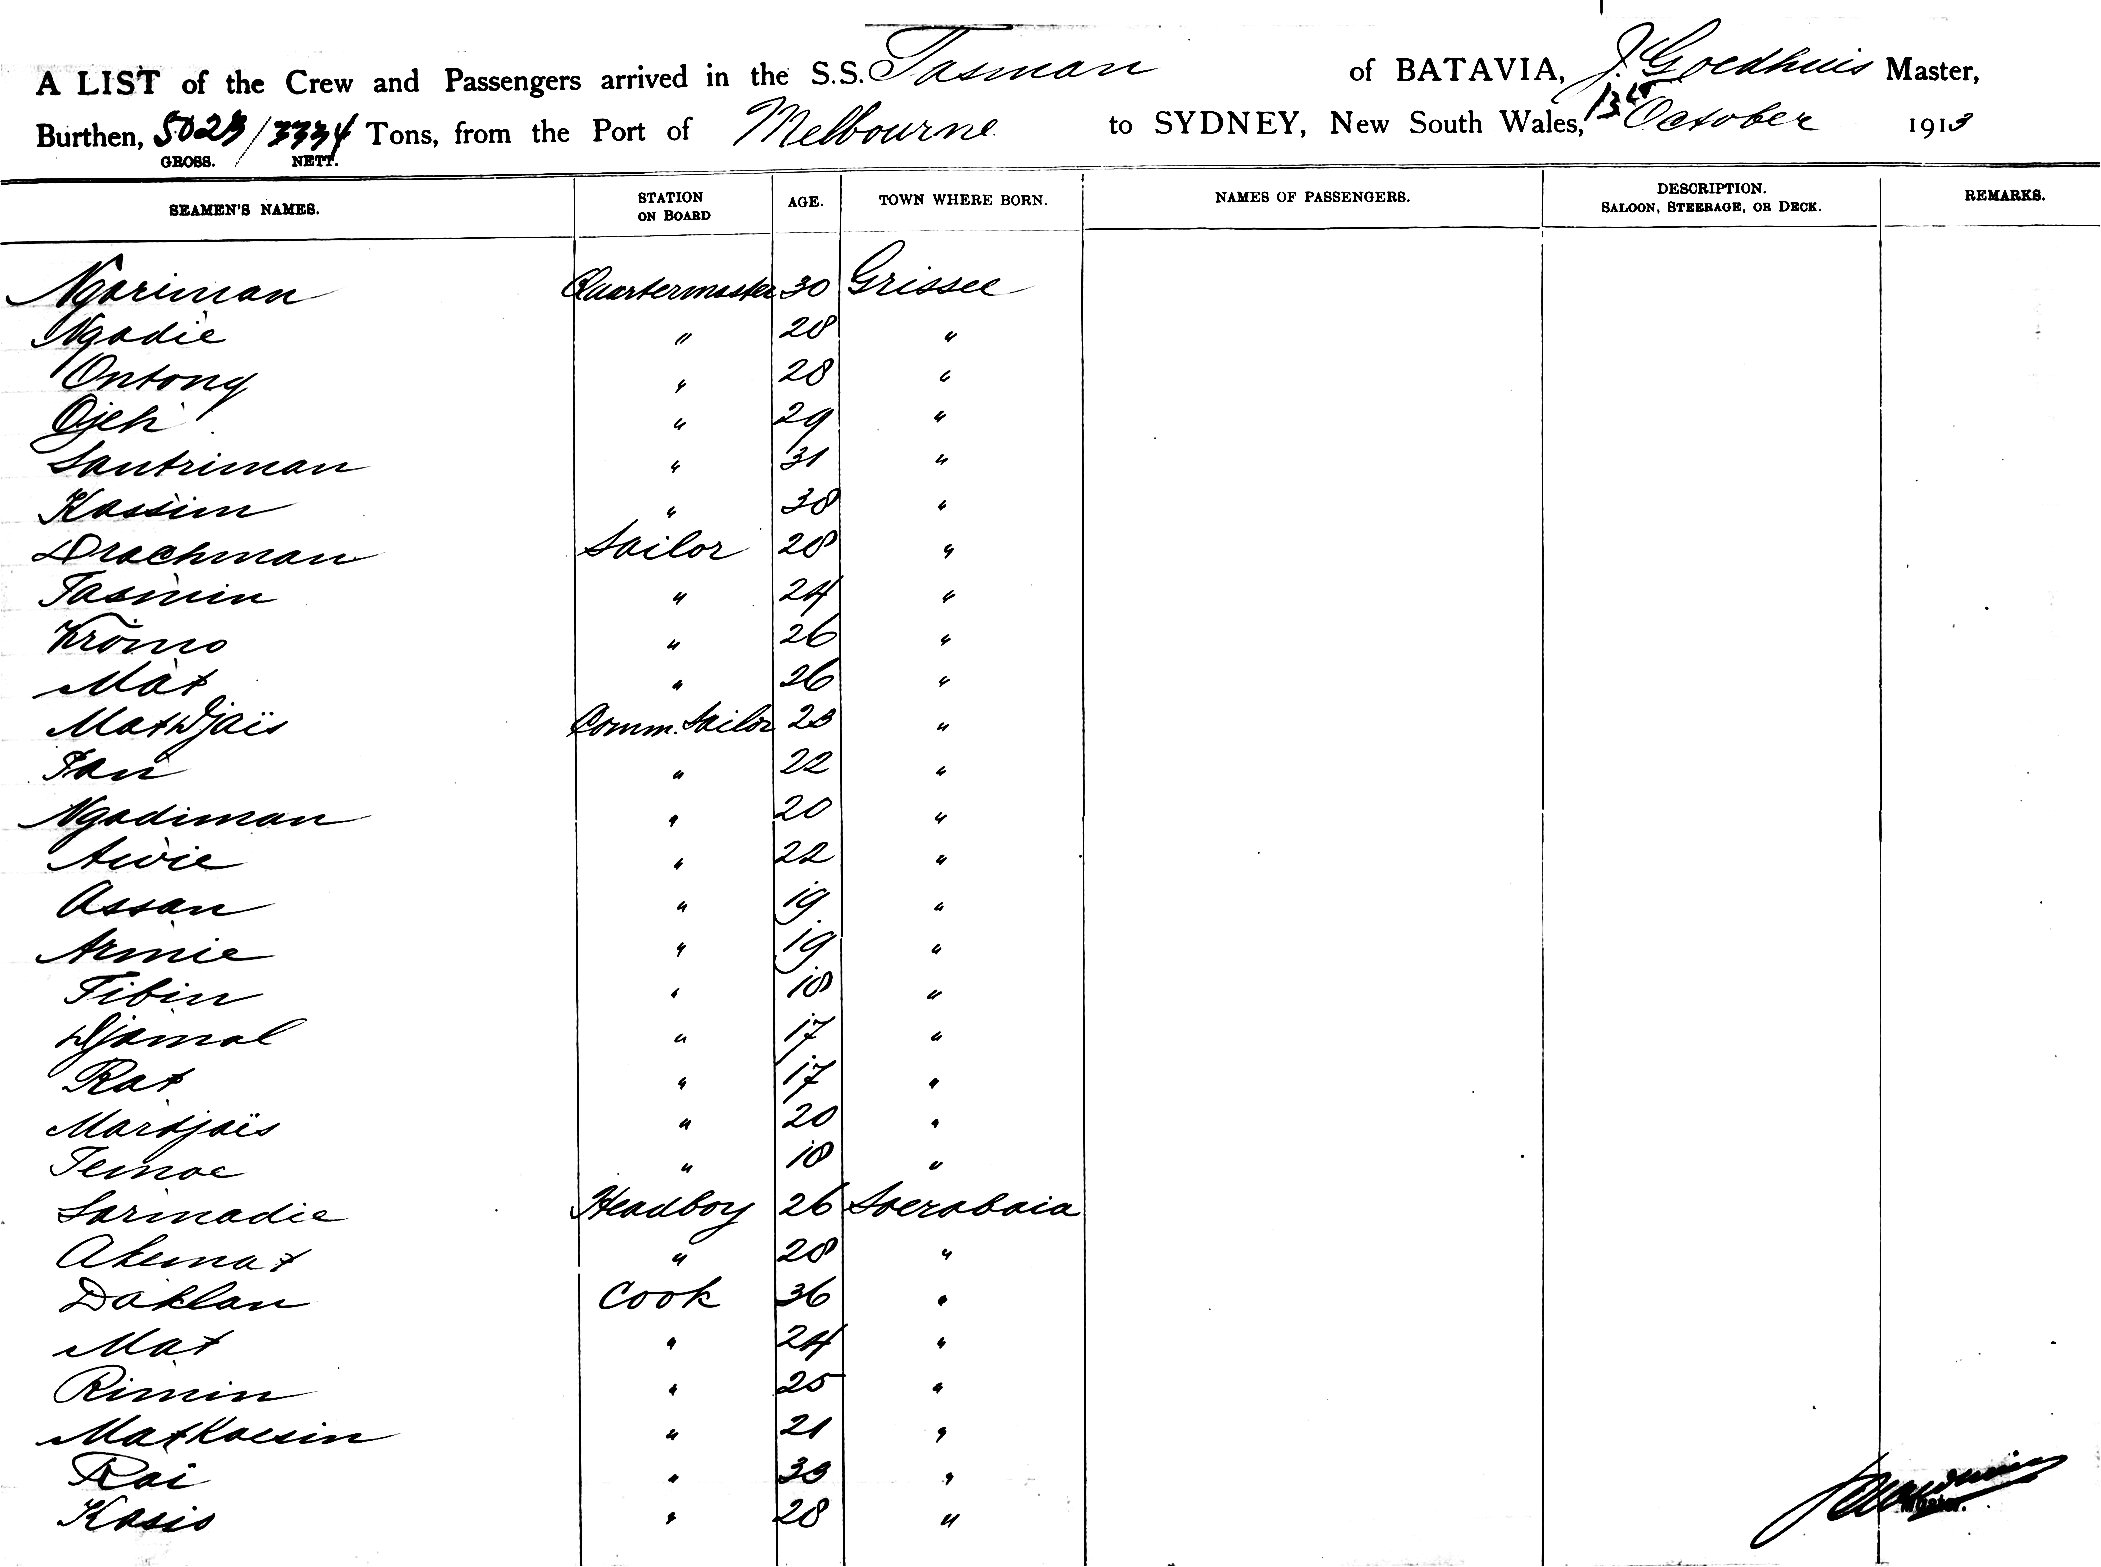 A LIST of the Crew and Passengers arrived in the S.S. Tasman of BATAVIA, J. Goedhuis Master,
Burthen, 5023 / 3334 Tons, from the Port of Melbourne to SYDNEY, New South Wales, 13th October 1913
GROSS. NETT.
SEAMEN'S NAMES. STATION ON BOARD AGE. TOWN WHERE BORN. NAMES OF PASSENGERS. DESCRIPTION. SALOON, STEERAGE, OR DECK. REMARKS.
Ngariman Quartermaster 30 Grissee
Ngadie " 28 "
Ontong " 28 "
Djeh " 29 "
Santriman " 31 "
Kassim " 38 "
Drachman Sailor 28 "
Tasmin " 24 "
Kromo " 26 "
Mat " 26 "
MatDjaïs Comm. Sailor 23 "
Pan " 22 "
Ngadiman " 20 "
Awie " 22 "
Assan " 19 "
Armie " 19 "
Tibin " 18 "
Djamal " 17 "
Rat " 17 "
Mardjaïs " 20 "
Temoe " 18 "
Sarmadie Headboy 26 Soerabaia
Akemat " 28 "
Daklan Cook 36 "
Mat " 24 "
Rimin " 25 "
MatKaesin " 21 "
Rai " 33 "
Kasis " 28 "
Master.